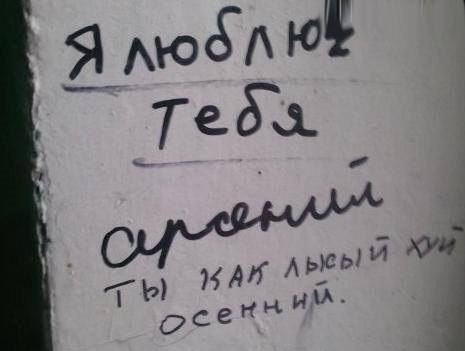 Я люблю
Тебя
арсений
ТЫ КАК лысый хуй
осенний.